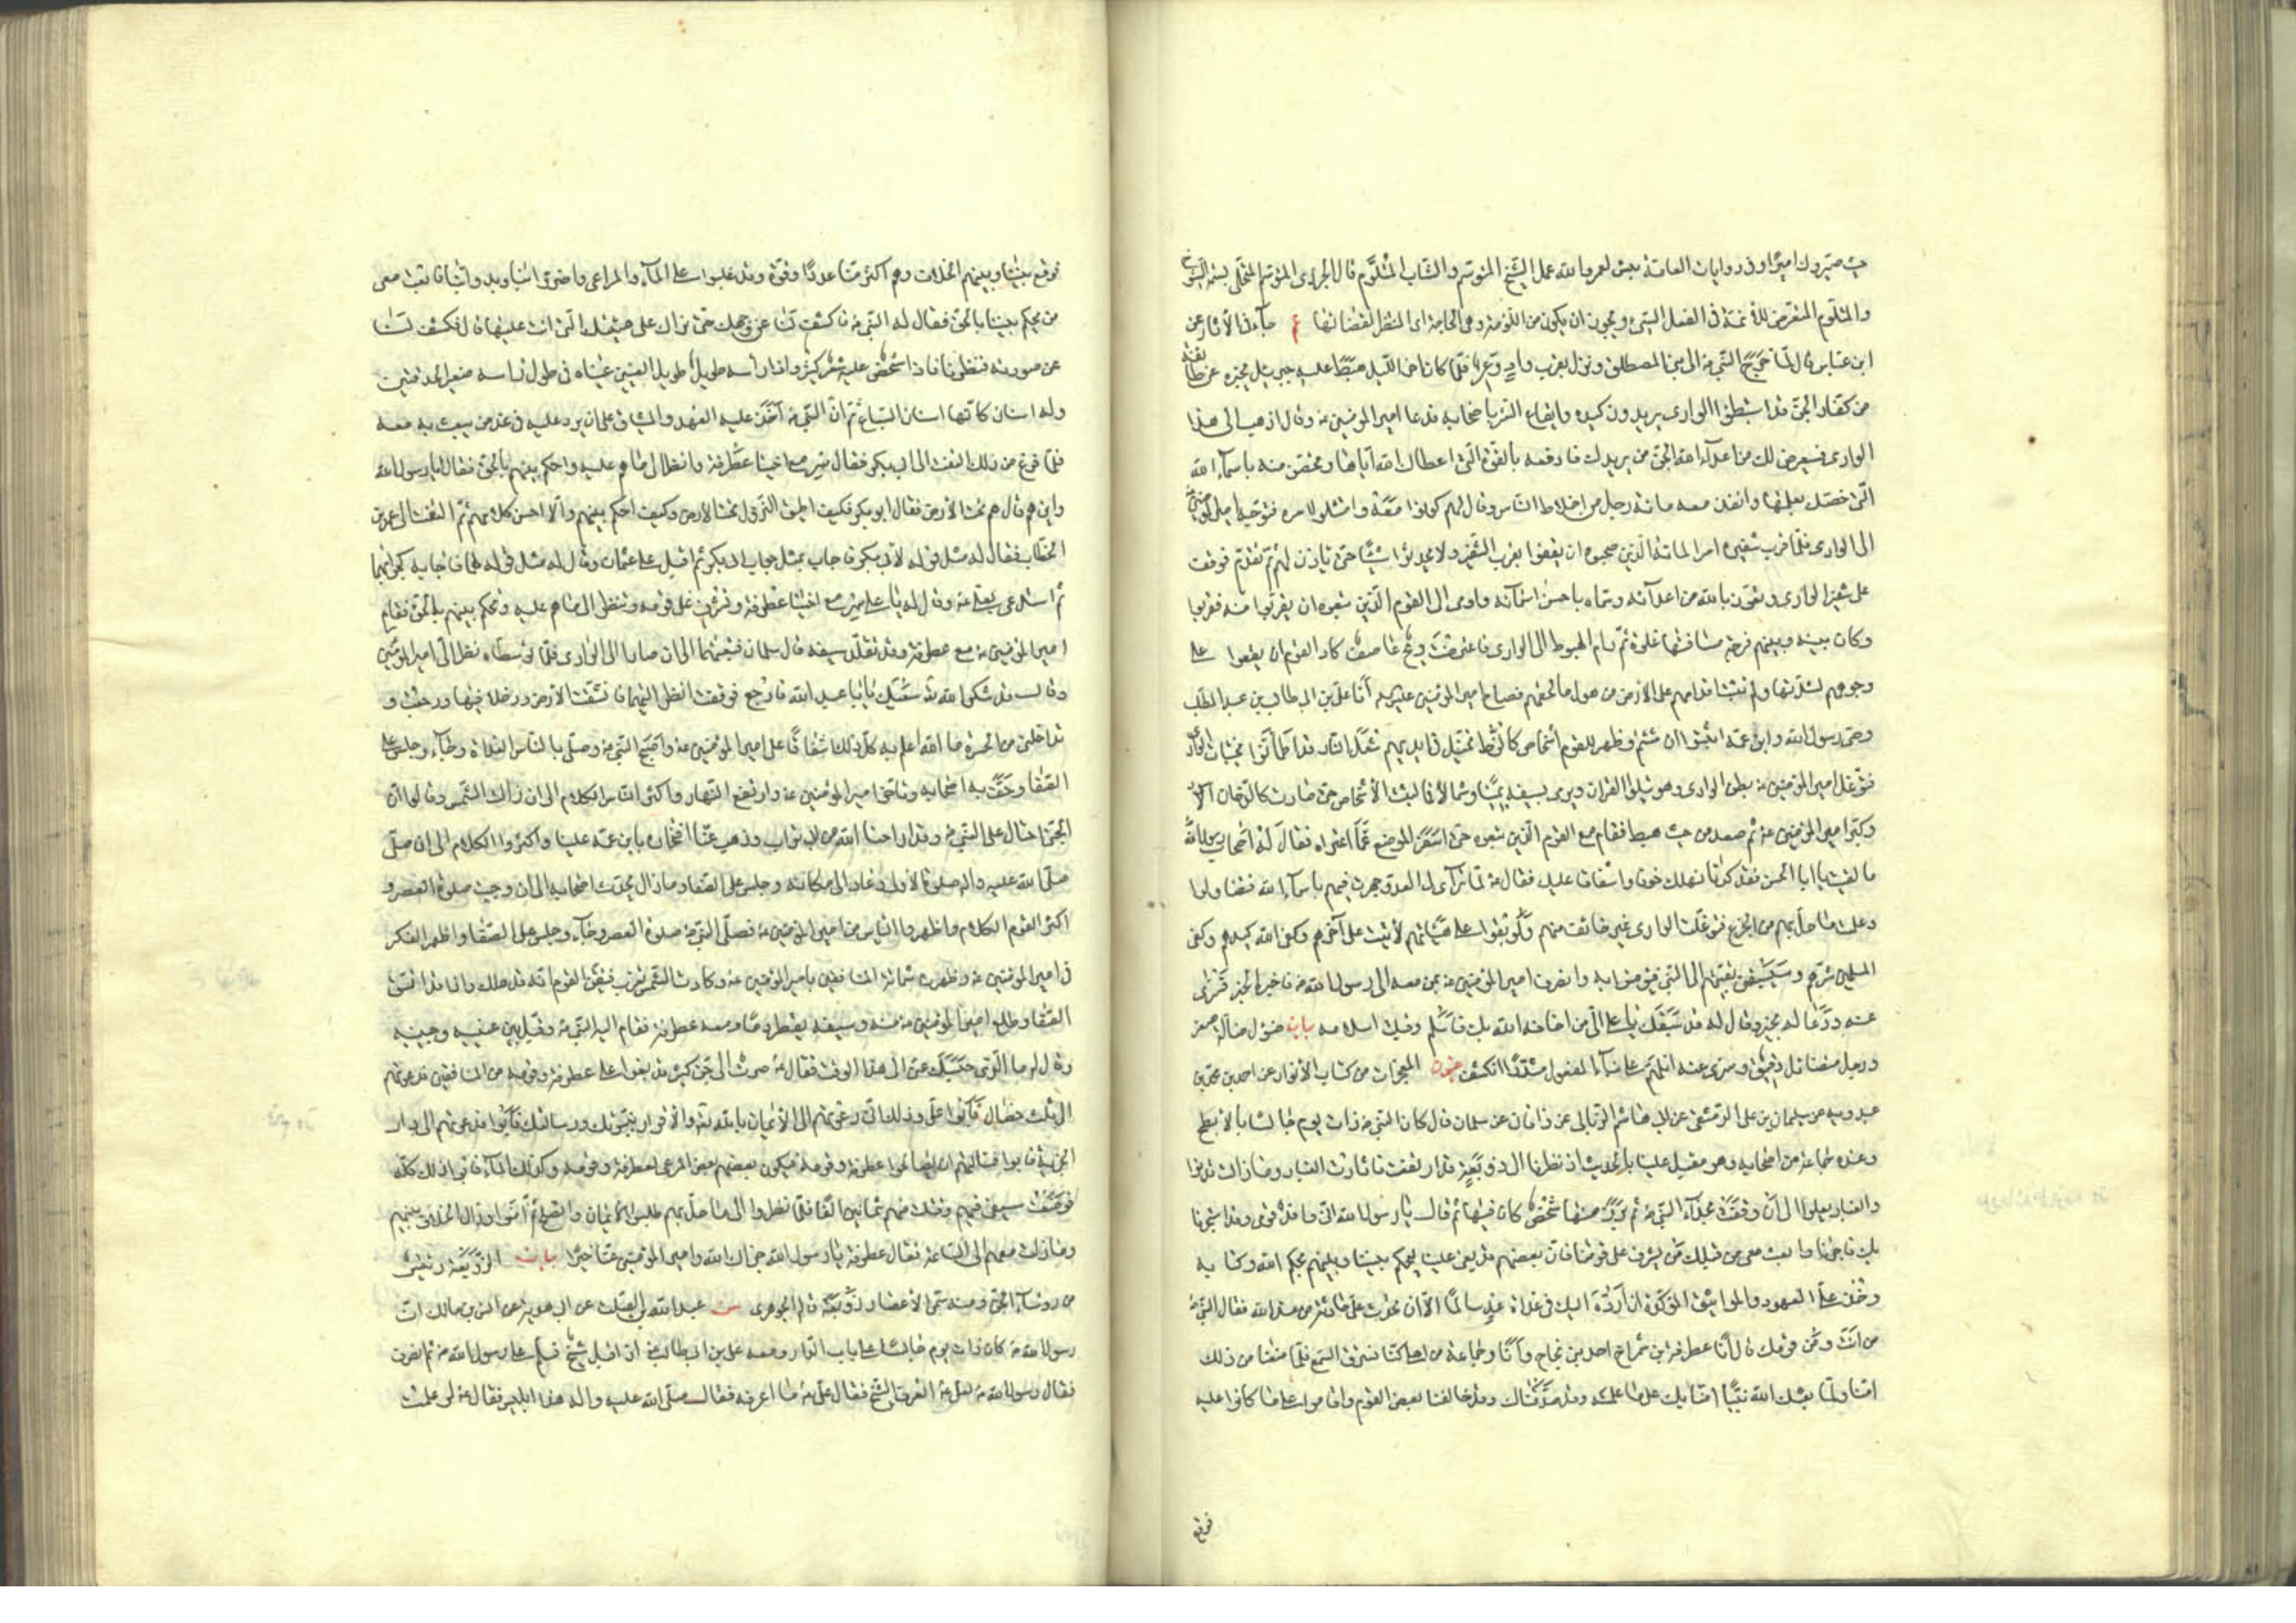 حيث صيّروك اميرًا وفى روايات العامّة بئس لعمر الله عمل الشيخ المتوسّم والشاب المتلوّم قال الجزرى المتوسّم المتحلّى بسمة الشيوخ
والمتلوّم المتعرّض للائمة فى الفعل السّيّئ ويجوز ان يكون من اللّومة وهى الحاجة اى المنتظر لقضائها عم جاء فى الآثار عن
ابن عباس قال لمّا خرج النّبىّ ص الى بنى المصطلق ونزل بقرب وادٍ وعِرٍ فلمّا كان اخر اللّيل هبط عليه جبرئيل يخبره عن طائفة
من كفّار الجنّ قد استبطنوا الوادى يريدون كيده وايقاع الشرّ باصحابه فدعا امير المؤمنين ع وقال اذهب الى هذا
الوادى فسيعرض لك من اعداء الله الجنّ من يريدك فادفعه بالقوّة الّتى اعطاك الله ايّاها وتحصّن منه باسماء الله
الّتى خصّك بعلمها وانفذ معه مائة رجل من اخلاط النّاس وقال لهم كونوا معه وامتثلوا امره فتوجّه امير المؤمنين
الى الوادى فلمّا قرب شفيره امر المائة الّذين صحبوه ان يقفوا بقرب الشّفير ولا يحدثوا شيئًا حتى ياذن لهم ثمّ تقدّم فوقف
على شفير الوادى وتعوّذ بالله من اعدائه وسمّاه باحسن اسمائه واومى الى القوم الّذين تبعوه ان يقربوا منه فقربوا
وكان بينه وبينهم فرجة مسافتها غلوة ثمّ رام الهبوط الى الوادى فاعترضت ريح عاصف كاد القوم ان يقعوا على
وجوههم لشدّتها ولم تثبت اقدامهم على الارض من هول ما لحقهم فصاح امير المؤمنين عليه السلم أنا علىّ بن ابى طالب بن عبد المطّلب
وصىّ رسول الله وابن عمّه اثبتوا ان شئتم وظهر للقوم أشخاص كالزّط تخيّل فى ايديهم شعل النّار قد اطمأنّوا بجنبات الوادى
فتوغّل امير المؤمنين ع بطن الوادى وهو يتلو القران ويومى بسيفه يمينًا وشمالاً فما لبث الأشخاص حتى صارت كالدّخان الاسود
وكبّر امير المؤمنين ع ثم صعد من حيث هبط فقام مع القوم الّذين تبعوه حتى اسفر الموضع عمّا اعتراه فقال له اصحاب رسول الله
ما لقيت يا ابا الحسن فقد كدنا نهلك خوفا واشفاقا عليك فقال ع لما تراءى لى العدوّ جهرت فيهم باسماء الله فتضاءلوا
وعلمت ما حلّ بهم من الجزع فتوغّلت الوادى غير خائف منهم ولو بقوا على هيئاتهم لأتيت على آخرهم وكفى الله كيدهم وكفى
المسلمين شرّهم وسيسبقنى بقيّتهم الى النّبىّ ص فيؤمنوا به وانصرف امير المؤمنين ع بمن معه الى رسول الله ص فاخبره الخبر فسرّى
عنه ودعا له بخير وقال له قد سبقك يا على الىّ من اخافه الله بك فاسلم وقبلت اسلامه بيان ضؤل ضآلة صغر
ورجل متضائل دقيق وسرّى عنه الهمّ على بناء المفعول مشدّدًا انكشف عيون المعجزات من كتاب الأنوار عن احمد بن محمد بن
عبدويه عن سليمان بن على الدّمشقى عن ابى هاشم الرّمانى عن زاذان عن سلمان قال كان النّبىّ ص ذات يوم جالسًا بالابطح
وعنده جماعة من اصحابه وهو مقبل علينا بالحديث اذ نظرنا الى زوبعة قد ارتفعت فاثارت الغبار وما زالت تدنوا
والغبار يعلوا الى ان وقفت بحذاء النّبىّ ص ثم برز منها شخص كان فيها ثم قال يا رسول الله انّى وافد قومى وقد استجرنا
بك فاجرنا وابعث معى من قبلك من يشرف على قومنا فانّ بعضهم قد بغى علينا ليحكم بيننا وبينهم بحكم الله وكتابه
وخذ علىّ العهود والمواثيق المؤكّدة ان اردّه اليك فى غداة غدٍ سالمًا الّا ان تحدث علىّ حادثة من عند الله فقال النّبىّ ص
من انت ومن قومك قال أنا عطرفة بن شمراخ احد بنى نجاح وأنا وجماعة من اهلى كنّا نسترق السّمع فلمّا منعنا من ذلك
امنّا ولمّا بعثك الله نبيًّا امنّا بك على ما علمته وقد صدّقناك وقد خالفنا بعض القوم واقاموا على ما كانوا عليه
فوقع
فوقع بيننا وبينهم الخلاف وهم اكثر منّا عددًا وقوّة وقد غلبوا على الماء والمراعى واضرّوا بنا وبدوابّنا فابعث معى
من يحكم بيننا بالحقّ فقال له النّبىّ ص فاكشف لنا عن وجهك حتى نراك على هيئتك الّتى انت عليها قال فكشف لنا
عن صورته فنظرنا فاذا شخص عليه شعر كثير واذا راسه طويل طويل العينين عيناه فى طول راسه صغير الحدقتين
وله اسنان كانّها اسنان السّباع ثمّ انّ النّبىّ ص اخذ عليه العهد والميثاق على ان يردّ عليه فى غد من يبعث به معه
فلمّا فرغ من ذلك التفت الى ابى بكر فقال سر مع اخينا عطرفة وانظر الى ما هم عليه واحكم بينهم بالحقّ فقال يا رسول الله
واين هم قال هم تحت الأرض فقال ابو بكر فكيف اطيق النّزول تحت الارض وكيف احكم بينهم ولا احسن كلامهم ثمّ التفت الى عمر بن
الخطّاب فقال له مثل قوله لأبى بكر فاجاب بمثل جواب ابى بكر ثمّ اقبل على عثمان وقال له مثل قوله لهما فاجابه كجوابهما
ثم استدعى بعلى ع وقال له يا على سر مع اخينا عطرفة وتشرف على قومه وتنظر الى ما هم عليه وتحكم بينهم بالحقّ فقام
امير المؤمنين ع مع عطرفة وقد تقلّد سيفه قال سلمان فتبعتهما الى ان صارا الى الوادى فلمّا توسّطاه نظر الىّ امير المؤمنين
وقال قد شكر الله تع سعيك يا ابا عبد الله فارجع فوقفت انظر اليهما فانشقّت الأرض ودخلا فيها ورجعت و
تداخلنى من الحسرة ما الله اعلم به كلّ ذلك اشفاقًا على امير المؤمنين ع واصبح النّبىّ ص وصلّى بالنّاس الغداة وجاء وجلس على
الصّفا وحفّ به اصحابه وتاخّر امير المؤمنين ع وارتفع النّهار واكثر النّاس الكلام الى ان زالت الشّمس وقالوا انّ
الجنّى احتال على النّبىّ ص وقد اراحنا الله من ابى تراب وذهب عنّا افتخاره بابن عمّه علينا واكثروا الكلام الى ان صلّى
صلّى الله عليه واله صلوة الأولى وعاد الى مكانه وجلس على الصّفا وما زال يحدّث اصحابه الى ان وجبت صلوة العصر و
اكثر القوم الكلام واظهروا اليأس من امير المؤمنين ع فصلّى النّبىّ ص صلوة العصر وجاء وجلس على الصّفا واظهر الفكر
فى امير المؤمنين ع وظهرت شماتة المنافقين بامير المؤمنين ع وكادت الشّمس تغرب فتيقّن القوم انّه قد هلك واذا قد انشقّ
الصّفا وطلع امير المؤمنين ع منه وسيفه يقطر دمًا ومعه عطرفة فقام اليه النّبىّ ص وقبّل بين عينيه وجبينيه
وقال له ما الّذى حبسك عنّى الى هذا الوقت فقال ع صرت الى جنّ كثير قد بغوا على عطرفة وقومه من المنافقين فدعوتهم
الى ثلث خصال فأبوا علىّ وذلك انّى دعوتهم الى الأيمان بالله تع والأقرار بنبوّتك ورسالتك فأبوا فدعوتهم الى اداء
الجزية فابوا فسالتهم ان يصالحوا عطرفة وقومه فيكون بعض المرعى لعطرفة وقومه وكذلك الماء فابوا ذلك كلّه
فوضعت سيفى فيهم وقتلت منهم ثمانين الفًا فلمّا نظروا الى ما حلّ بهم طلبوا الأمان والصّلح ثمّ امنوا وزال الخلاف بينهم
وما زلت معهم الى السّاعة فقال عطرفة يا رسول الله جزاك الله وامير المؤمنين عنّا خيرًا بيان الزّوبعة رئيس
من رؤساء الجنّ ومنه سمّى الأعصار زوبعة قاله الجوهرى عبد الله عن ابى هدبة عن انس بن مالك انّ
رسول الله ص كان ذات يوم جالسًا على باب الدّار ومعه على بن ابى طالب ع اذ اقبل شيخ فسلّم على رسول الله ص ثم انصرف
فقال رسول الله ص لعلى ع اتعرف الشّيخ فقال على ع ما اعرفه فقال صلّى الله عليه واله هذا ابليس فقال ع لو علمت